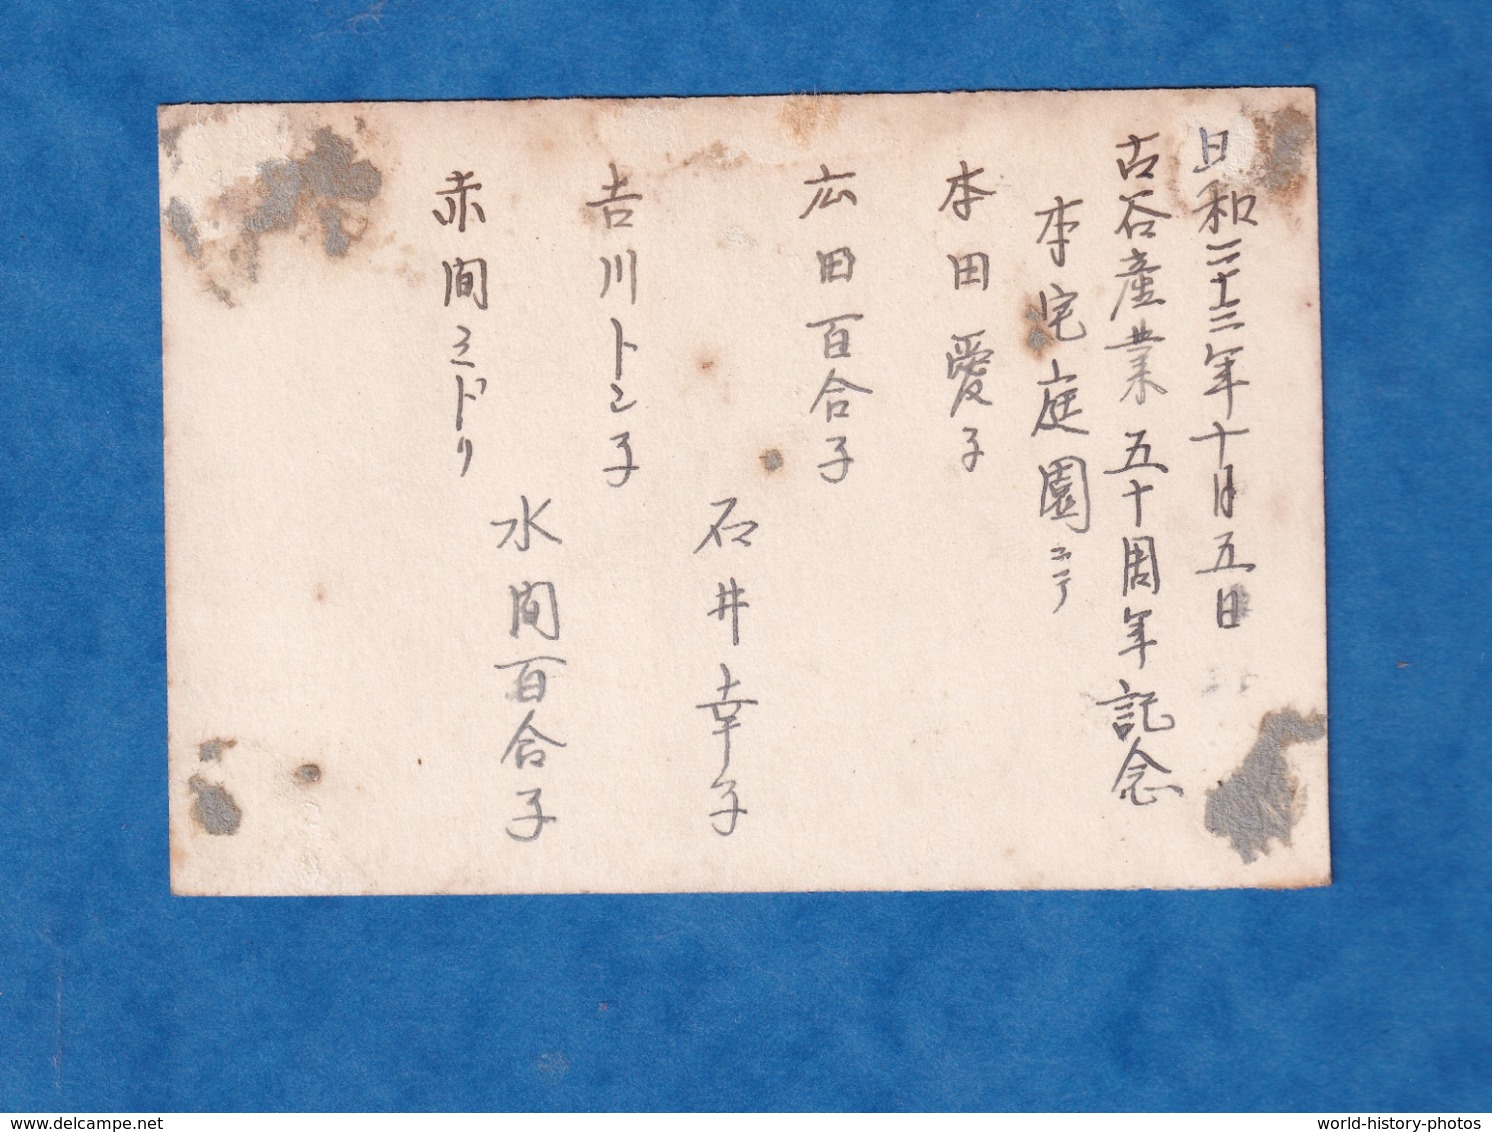 日和二十三年十月五日
古谷産業五十周年記念
本宅庭園ニテ
本田愛子
広田百合子
石井幸子
吉川トシ子
水間百合子
赤間ミドリ
world-history-photos